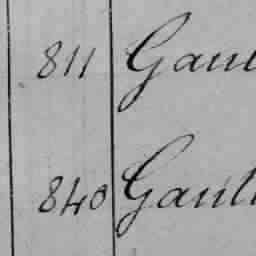 811 Gaul
840 Gault